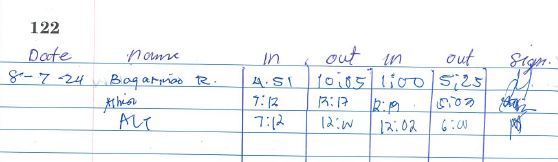 122
Date name in out in out Sign.
8-7-24 Bagarmao R. 4.51 10:05 1:00 5:25
7:12 12:17 12:19 5:03
ALI 7:12 12:W 12:02 6:W